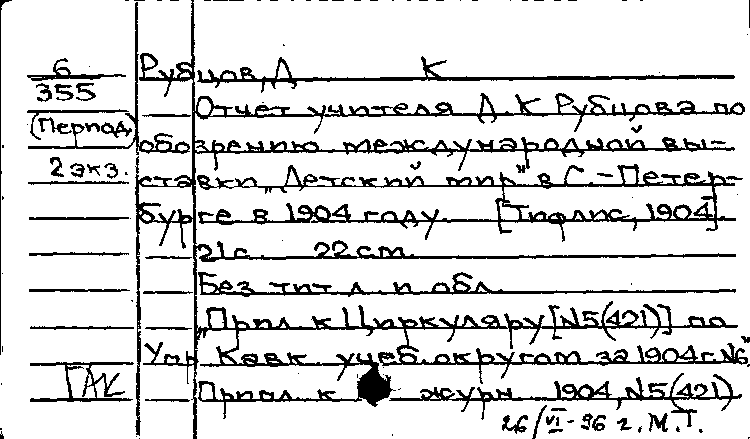 6
355
(Период)
2 экз.
Рубцов, Д К
Отчет учителя Д. К Рубцова по
обозрению международной вы-
ставки „Детский мир" в С.-Петер-
бурге в 1904 году. [Тифлис, 1904].
21 с. 22 см.
Без тит л. и обл.
„Прил к Циркуляру [№5(421)] по
Упр Кавк учеб. округом за 1904 г. №6"
Прил к журн 1904, №5(421).
26/VI-96 г. М.Т.